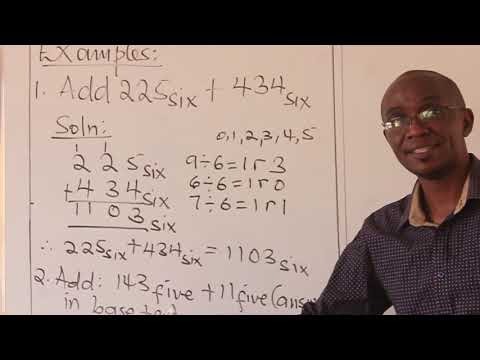 Examples:
1. Add 225six + 434six
Soln:
0,1,2,3,4,5
1 1
2 2 5six
+4 3 4six
1 1 0 3six
9÷6=1 r 3
6÷6=1 r 0
7÷6=1 r 1
∴ 225six+434six = 1103six
2. Add: 143five + 11five(answer
in base ten